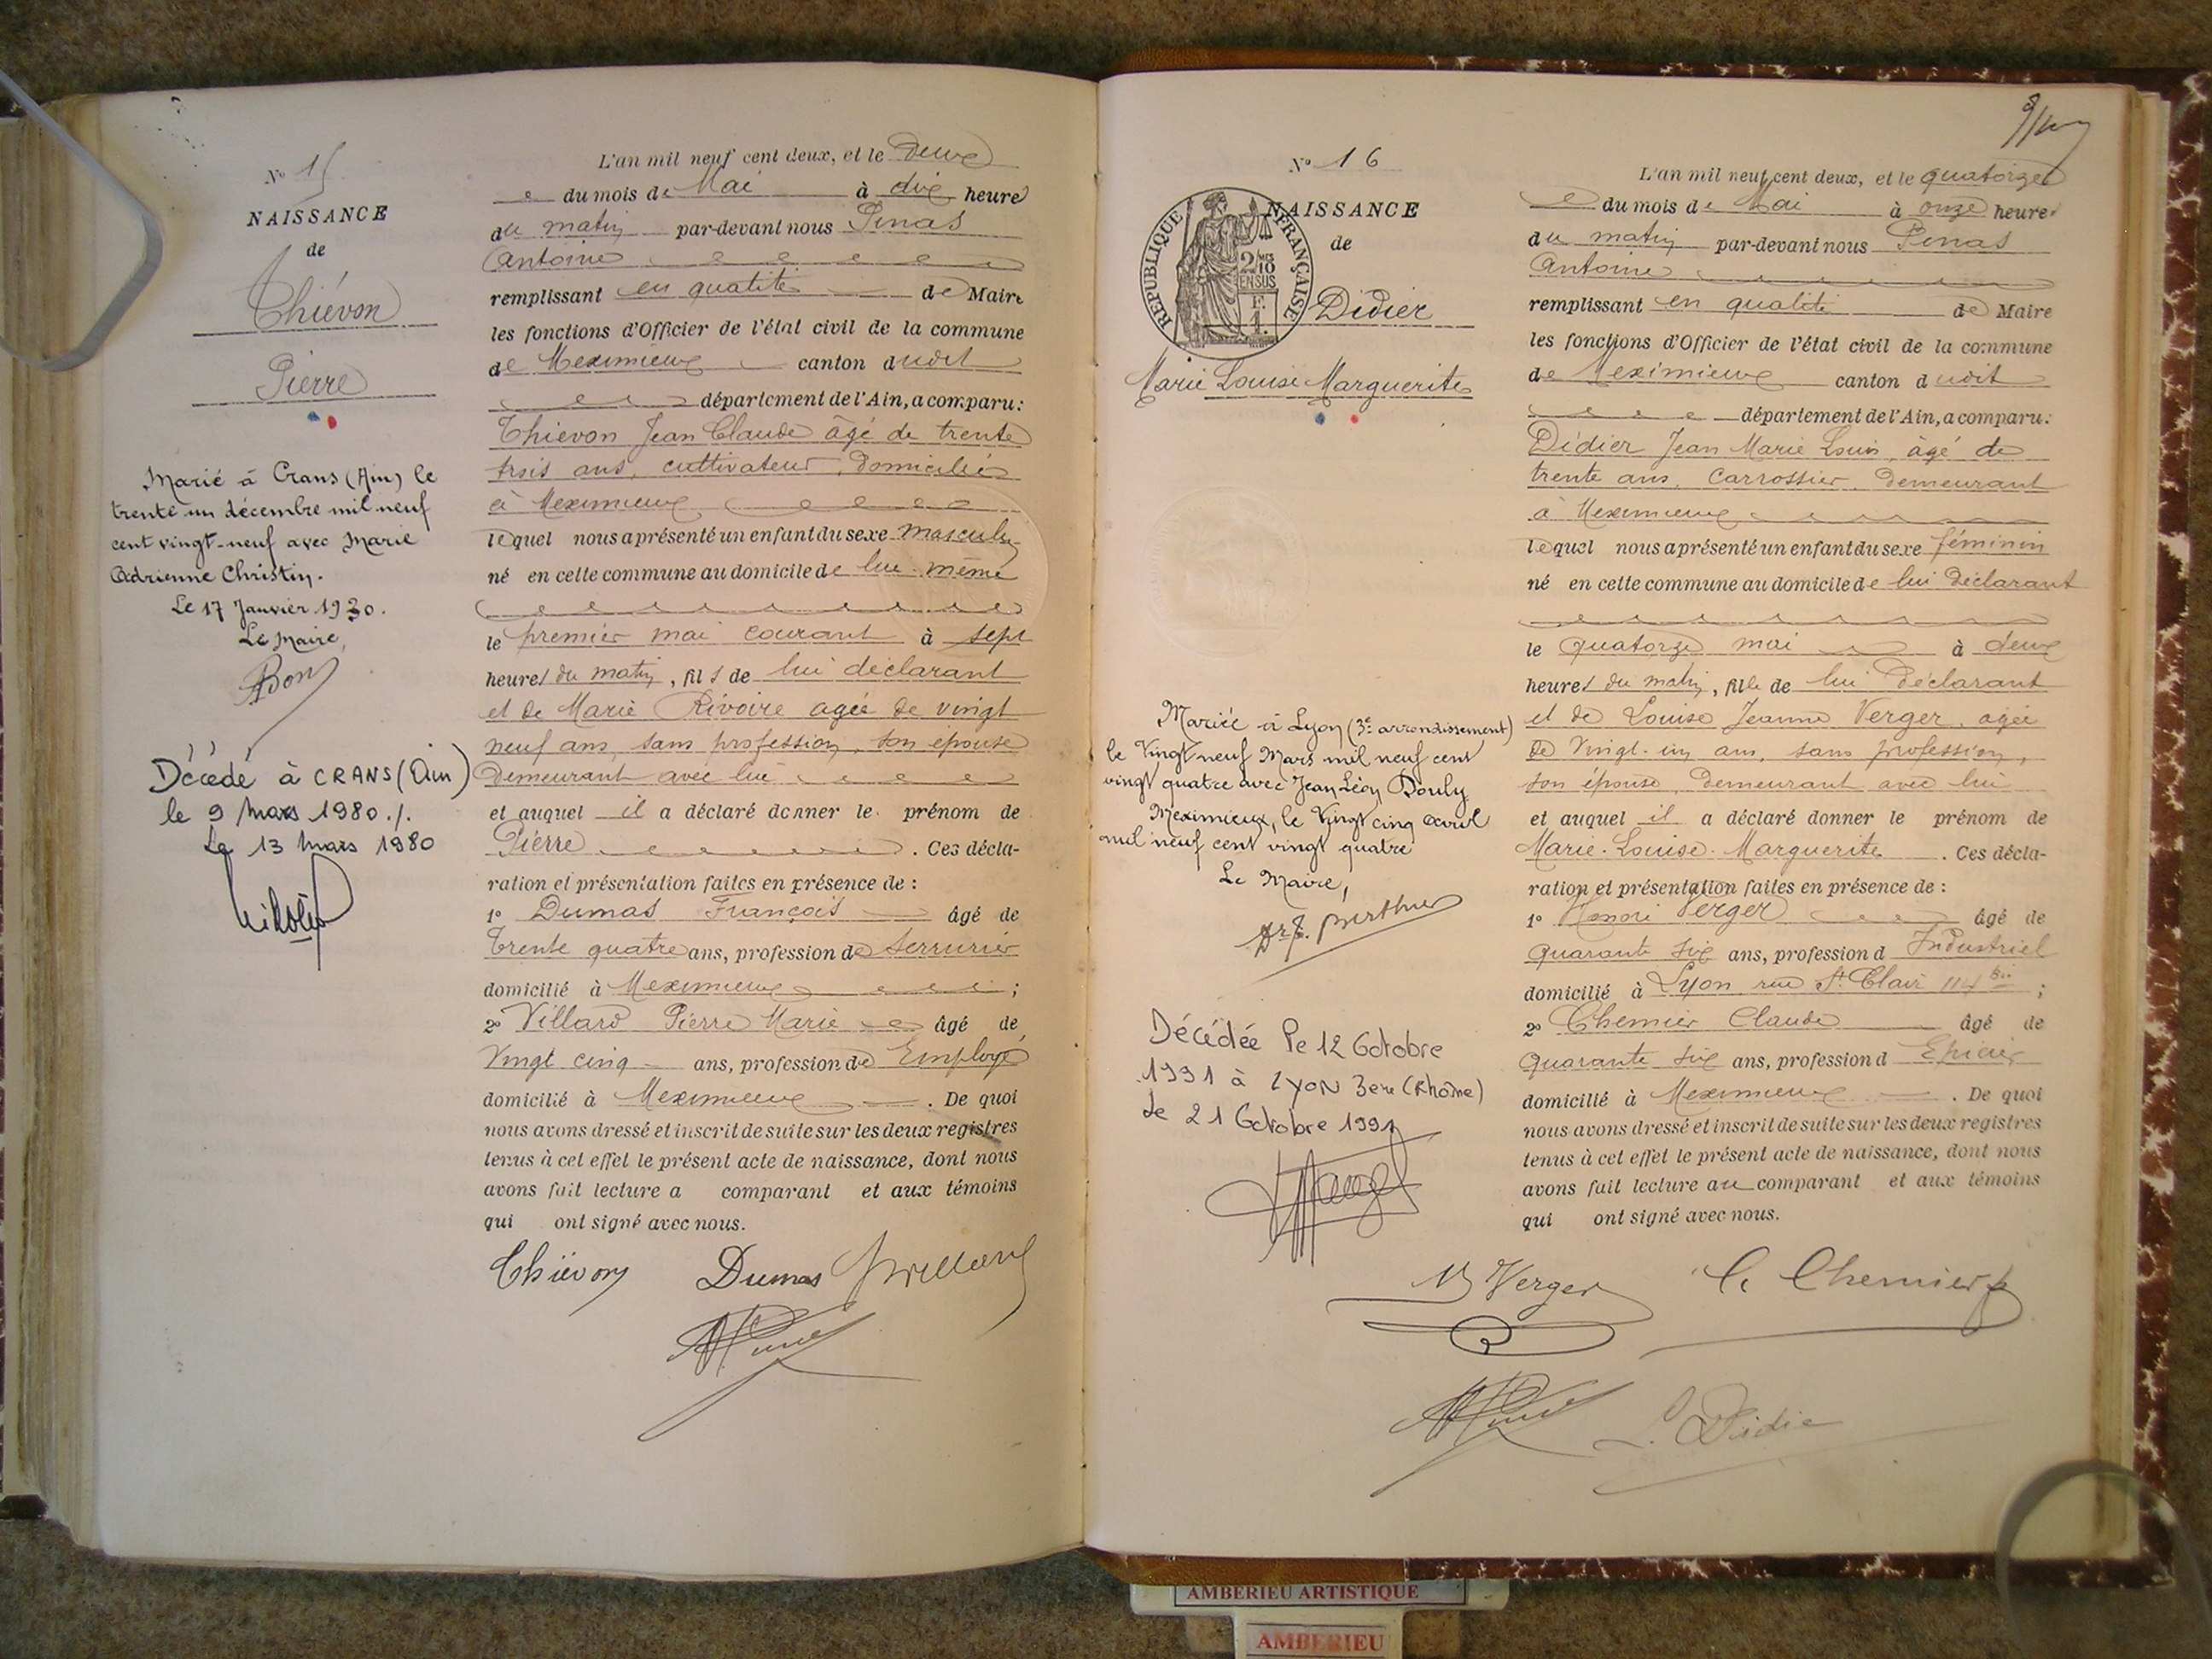 Nº 15
NAISSANCE
de
Thiévon
Pierre
Marié à Crans (Ain) le
trente un décembre mil neuf
cent vingt-neuf avec Marie
Adrienne Christin.
Le 17 Janvier 1930.
Le Maire,
Décédé à CRANS (Ain)
le 9 Mars 1980./.
Le 13 Mars 1980
L'an mil neuf cent deux, et le deux
du mois de Mai à dix heures
du matin par-devant nous Penas
Antoine
remplissant en qualité de Maire
les fonctions d'Officier de l'état civil de la commune
de Meximieux canton dudit
département de l'Ain, a comparu:
Thievon Jean Claude âgé de trente
trois ans, cultivateur, domicilié
à Meximieux
lequel nous a présenté un enfant du sexe masculin
né en cette commune au domicile de lui même
le premier mai courant à sept
heures du matin, fils de lui déclarant
et de Marie Rivoire agée de vingt
neuf ans, sans profession, son épouse
demeurant avec lui
et auquel il a déclaré donner le prénom de
Pierre. Ces décla-
ration et présentation faites en présence de :
1º Dumas François âgé de
Trente quatre ans, profession de Serrurier
domicilié à Meximieux ;
2º Villard Pierre Marie âgé de
Vingt cinq ans, profession de Employé
domicilié à Meximieux. De quoi
nous avons dressé et inscrit de suite sur les deux registres
tenus à cet effet le présent acte de naissance, dont nous
avons fait lecture a comparant et aux témoins
qui ont signé avec nous.
Thiévon Dumas Villard
Nº 16
REPUBLIQUE FRANÇAISE
2/10 EN SUS
NAISSANCE
de
Didier
Marie Louise Marguerite
Mariée à Lyon (3e arrondissement)
le Vingt neuf Mars mil neuf cent
vingt quatre avec Jean Léon Douly
Meximieux, le Vingt cinq avril
mil neuf cent vingt quatre
Le Maire,
Décédée le 12 Octobre
1991 à LYON 3eme (Rhône)
Le 21 Octobre 1991
L'an mil neuf cent deux, et le quatorze
du mois de Mai à onze heures
du matin par-devant nous Penas
Antoine
remplissant en qualité de Maire
les fonctions d'Officier de l'état civil de la commune
de Meximieux canton dudit
département de l'Ain, a comparu:
Didier Jean Marie Louis, âgé de
trente ans, Carrossier, demeurant
à Meximieux
lequel nous a présenté un enfant du sexe féminin
né en cette commune au domicile de lui déclarant
le quatorze mai à deux
heures du matin, fille de lui déclarant
et de Louise Jeanne Verger, agée
de vingt-un ans, sans profession,
son épouse, demeurant avec lui
et auquel il a déclaré donner le prénom de
Marie-Louise-Marguerite. Ces décla-
ration et présentation faites en présence de :
1º Honoré Verger âgé de
Quarante six ans, profession d Industriel
domicilié à Lyon rue St Clair 114 bis ;
2º Chemier Claude âgé de
Quarante six ans, profession d Epicier
domicilié à Meximieux. De quoi
nous avons dressé et inscrit de suite sur les deux registres
tenus à cet effet le présent acte de naissance, dont nous
avons fait lecture au comparant et aux témoins
qui ont signé avec nous.
Verger C. Chemier
L. Didier
AMBERIEU ARTISTIQUE
AMBERIEU